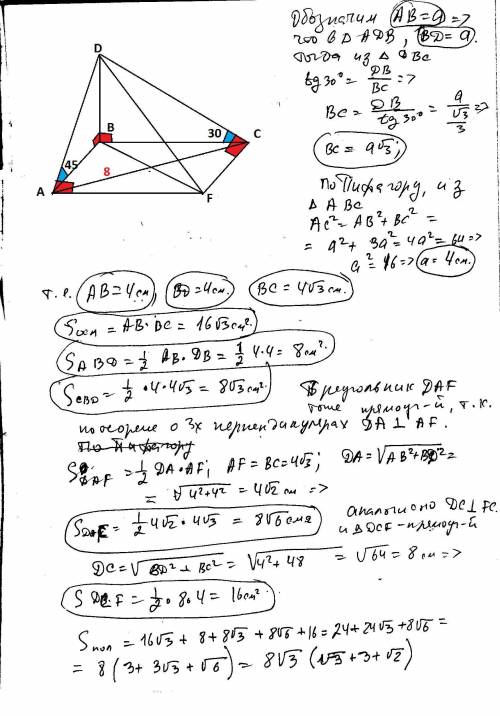 Обозначим AB=a =>
что в Δ ADB, BD=a.
тогда из Δ DBC
tg30°= DB/BC =>
BC= DB/tg30° = a/(√3/3) =>
BC = a√3;
По Пифагору, из
Δ ABC
AC²=AB²+BC² =
= a²+3a²=4a²=64=>
a²=16=> a=4см.
D
B
30
C
45
8
A
F
т.е. AB=4см, BD=4см. BC=4√3см.
Sосн = AB·BC = 16√3см².
SABD=½ AB·DB=½ 4·4=8см².
SCBD=½·4·4√3=8√3см².
Треугольник DAF
тоже прямоуг-й, т.к.
по теореме о 3х перпендикулярах DA⊥AF.
По Пифагору
SDAF=½DA·AF; AF=BC=4√3; DA=√AB²+BD²=
= √4²+4² = 4√2 см =>
SDAF=½4√2·4√3 = 8√6см²
аналогично DC⊥FC
и ΔDCF-прямоуг-й
DC=√BD²+BC² = √4²+48 = √64=8см=>
SDCF=½·8·4=16см²
Sпол=16√3+8+8√3+8√6+16=24+24√3+8√6=
= 8(3+3√3+√6) = 8√3(√3+3+√2)